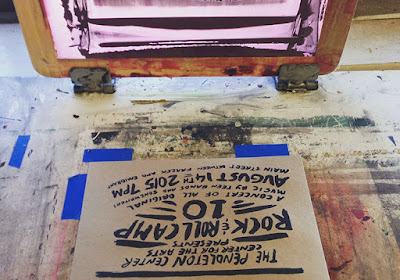 THE PENDLETON CENTER
CENTER FOR THE ARTS
PRESENTS
ROCK & ROLL CAMP
10
A CONCERT OF ALL ORIGINAL
MUSIC BY TEEN BANDS AND
AUGUST 14TH 2015 7PM
MAIN STREET BETWEEN FRAZER AND EMIGRANT